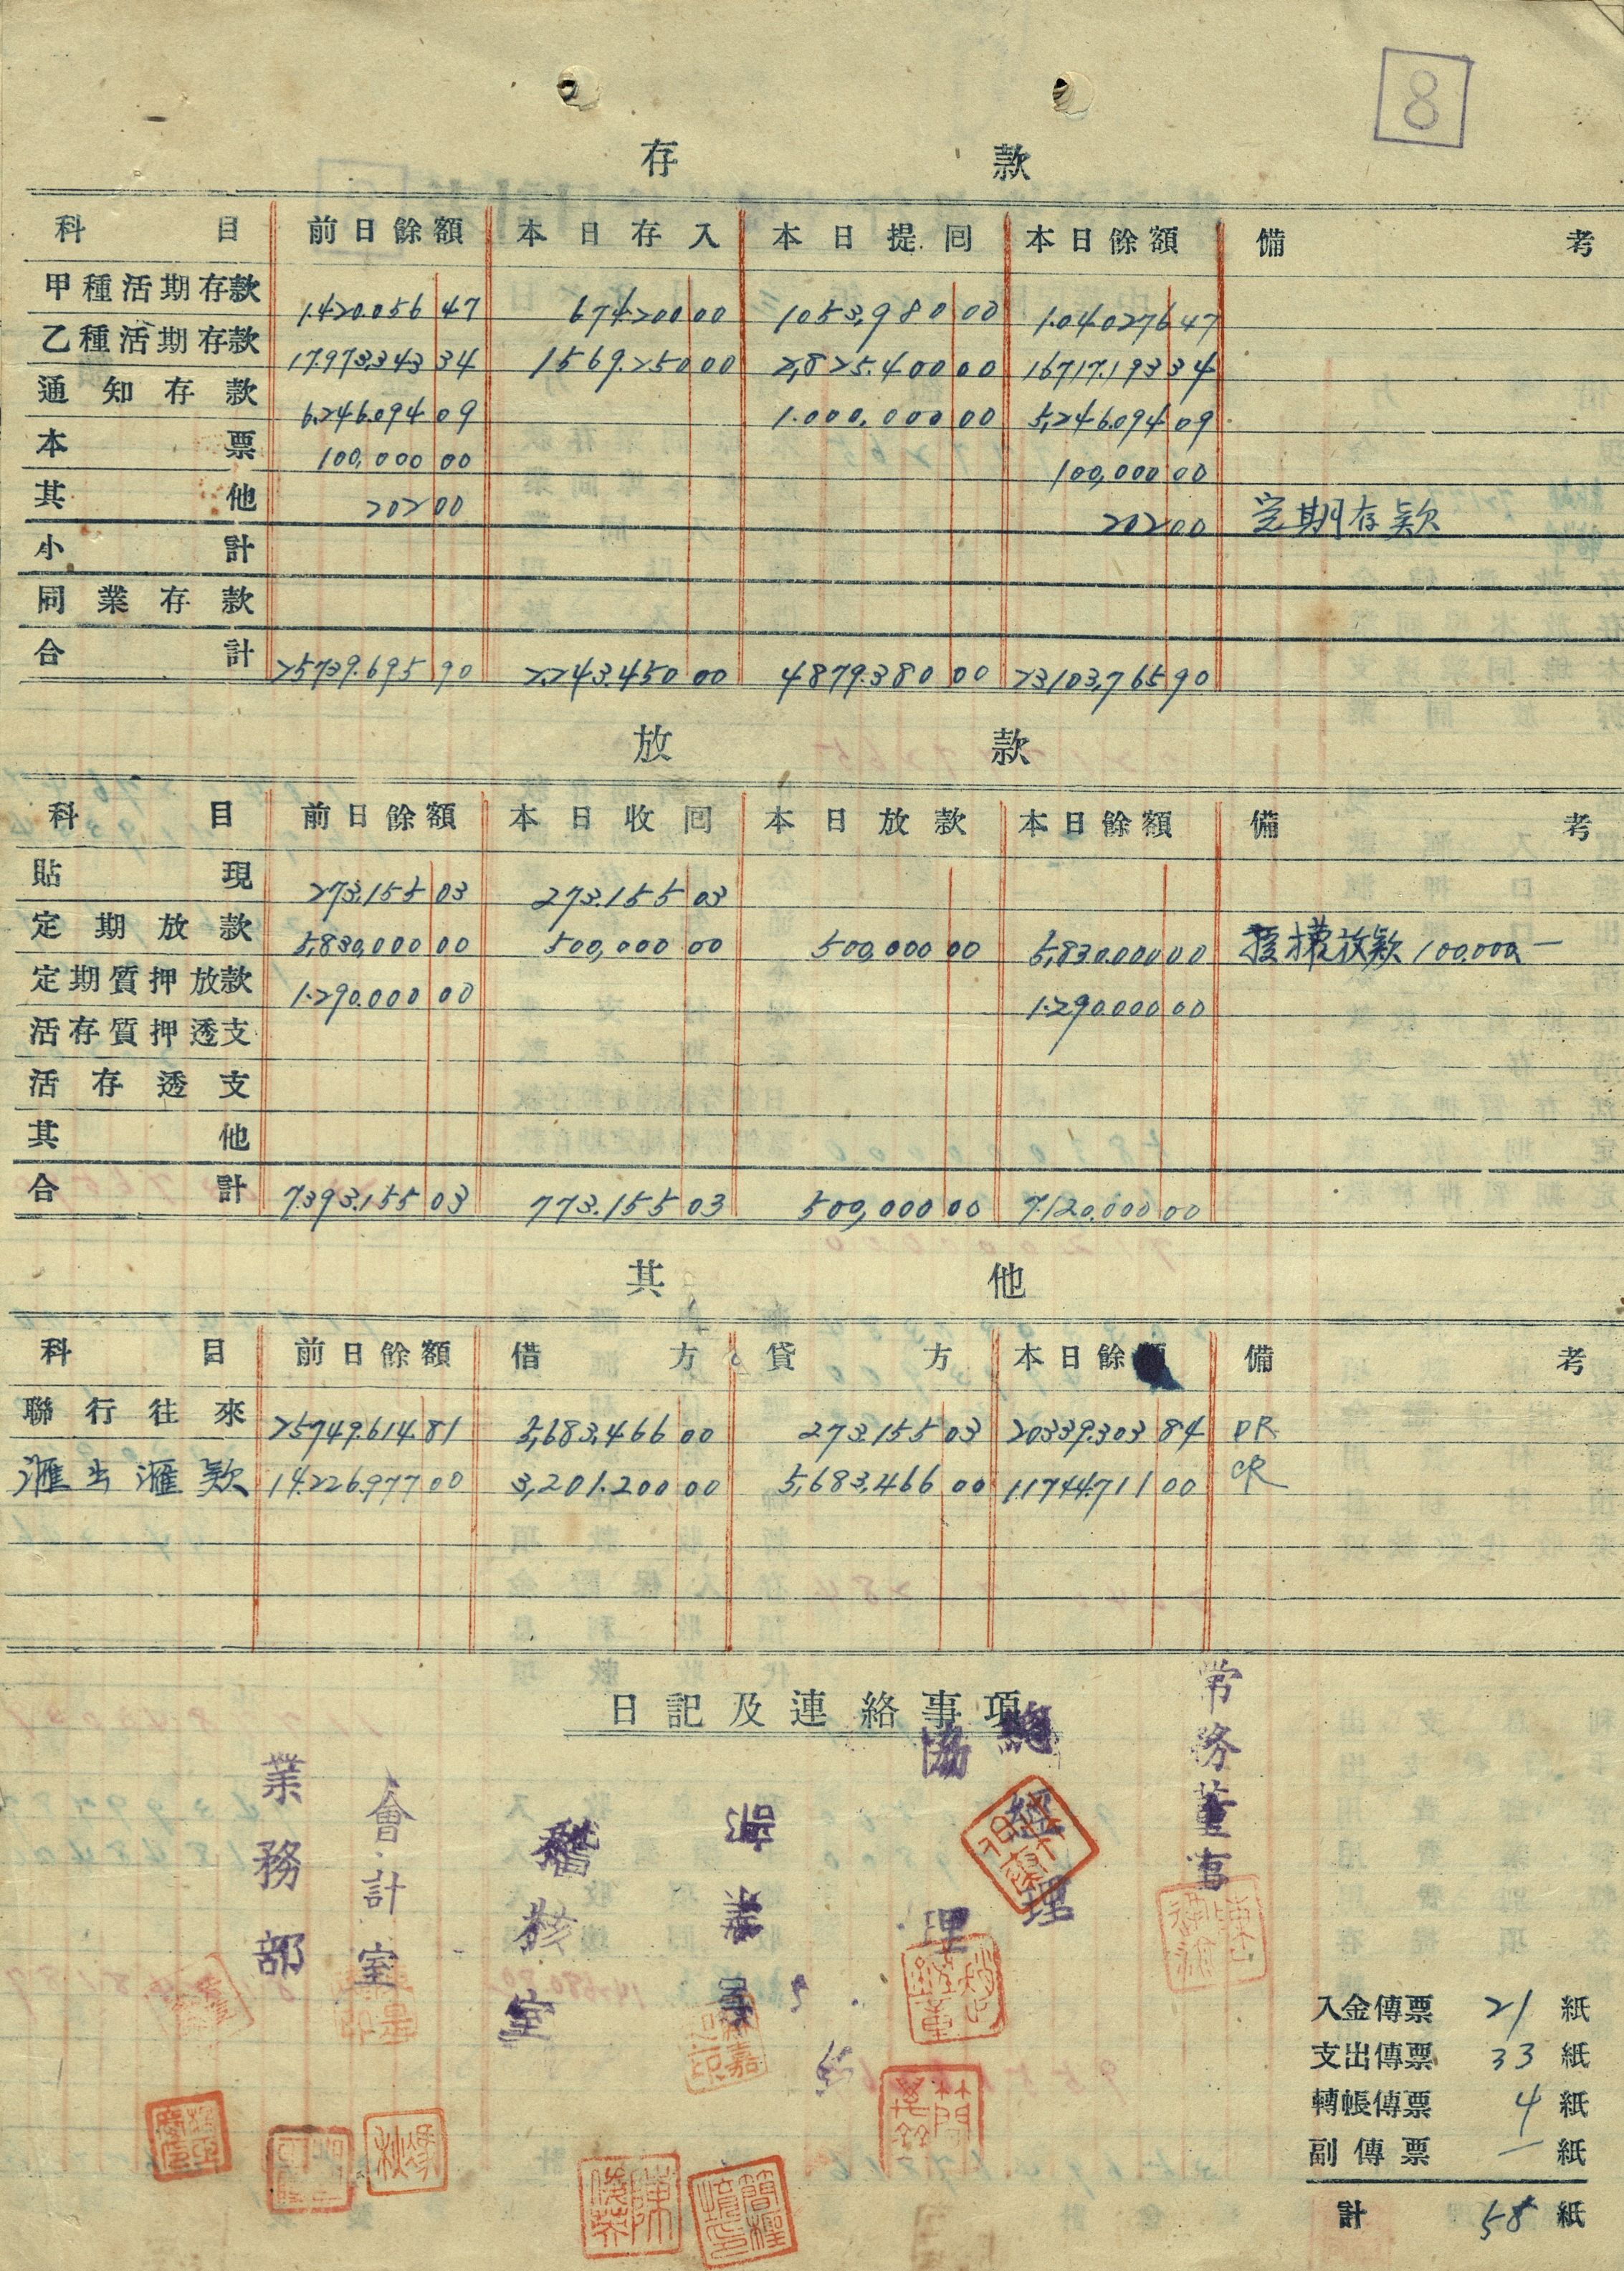 8
存款
科目 前日餘額 本日存入 本日提回 本日餘額 備考
甲種活期存款 1.420.056 47 674.200 00 1053,980 00 1.040276 47
乙種活期存款 17.973.343 34 1569.250 00 2,825.400 00 16717.193 34
通知存款 6.246.094 09 1.000,000 00 5,246.094 09
本票 100,000 00 100,000 00
其他 202 00 202 00 定期存款
小計
同業存款
合計 25739.695 90 2.243.450 00 4879.380 00 23103,765 90
放款
科目 前日餘額 本日收回 本日放款 本日餘額 備考
貼現 273.155 03 273.155 03
定期放款 5,830,000 00 500,000 00 500,000 00 5,830.000 00 放款 100.000 一
定期質押放款 1.290.000 00 1.290.000 00
活存質押透支
活存透支
其他
合計 7.393.155 03 773.155 03 500,000 00 7.120.000 00
其他
科目 前日餘額 借方 貸方 本日餘 備考
聯行往來 25749.614 81 5,683,466 00 273.155 03 20339.303 84 DR
滙出滙款 14.226.977 00 3,201.200 00 5,683,466 00 11.744.711 00 CR
日記及連絡事項
常務董事
總經理
協理
稽核室
會計室
業務部
入金傳票 21 紙
支出傳票 33 紙
轉帳傳票 4 紙
副傳票 一 紙
計 58 紙